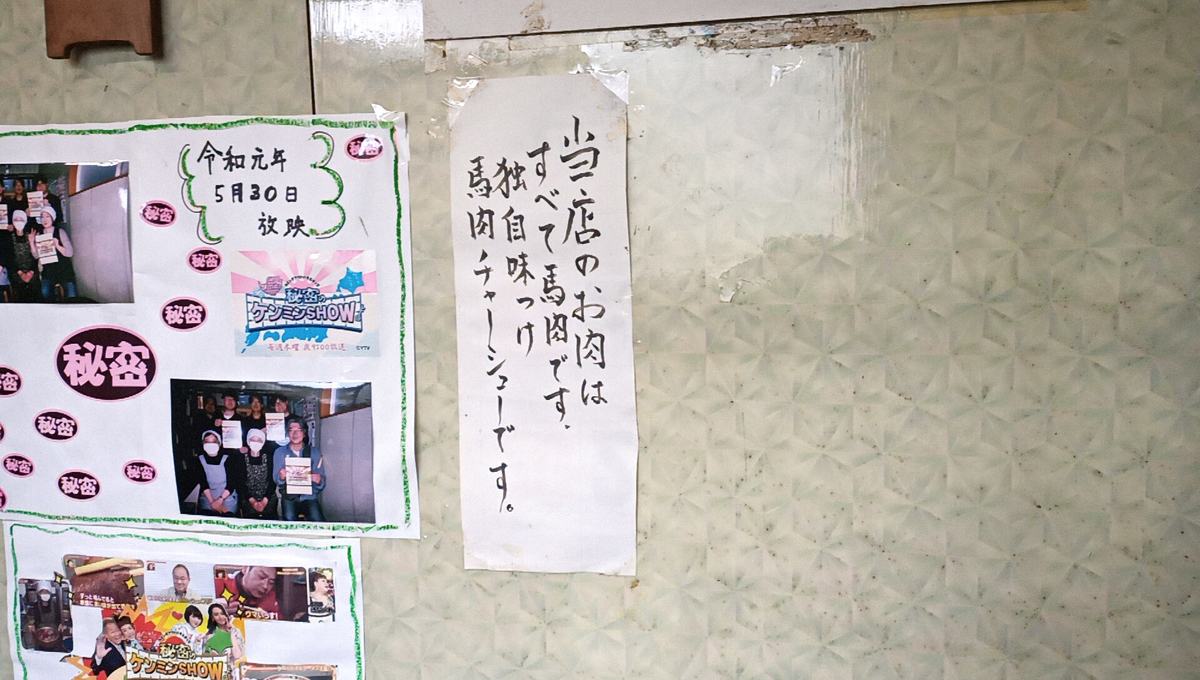 令和元年
5月30日
放映
秘密
秘密
秘密
秘密
秘密の
ケンミンSHOW
毎週木曜 夜9:00放送
©YTV
秘密
秘密
秘密
秘密
秘密
当店のお肉は
すべて馬肉です。
独自味つけ
馬肉チャーシューです。
ウマいっす!
秘密の
ケンミンSHOW